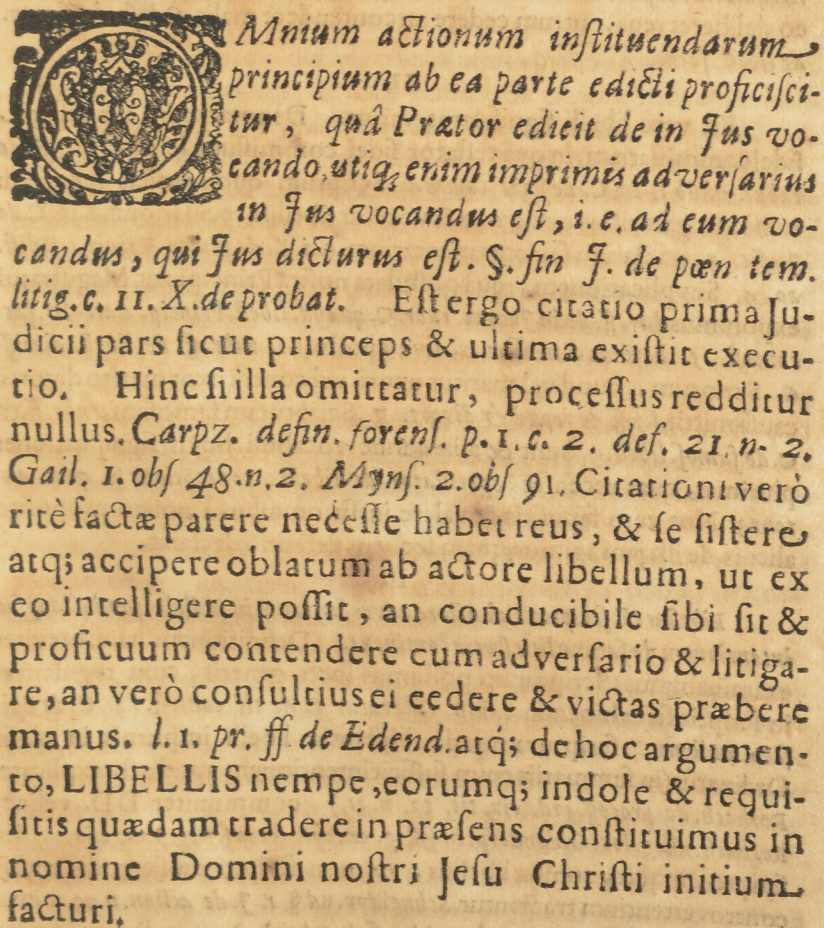 OMnium actionum inſtituendarum
principium ab ea parte edicti proficiſci-
tur, quâ Prætor edicit de in Jus vo-
cando, utiq; enim imprimis adverſarius
in Jus vocandus eſt, i. e. ad eum vo-
candus, qui Jus dicturus eſt. §. fin J. de pœn tem.
litig. c. 11. X. de probat. Eſt ergo citatio prima Ju-
dicii pars ſicut princeps & ultima exiſtit execu-
tio. Hinc ſi illa omittatur, proceſſus redditur
nullus. Carpz. defin. forenſ. p. 1. c. 2. def. 21. n. 2.
Gail. 1. obſ 48. n. 2. Mynſ. 2. obſ 91. Citationi verò
ritè factæ parere neceſſe habet reus, & ſe ſiſtere
atq; accipere oblatum ab actore libellum, ut ex
eo intelligere poſſit, an conducibile ſibi ſit &
proficuum contendere cum adverſario & litiga-
re, an verò conſultius ei eedere & victas præbere
manus. l. 1. pr. ff de Edend. atq́; de hoc argumen-
to, LIBELLIS nempe, eorumq; indole & requi-
ſitis quædam tradere in præſens conſtituimus in
nomine Domini noſtri Jeſu Chriſti initium
facturi.